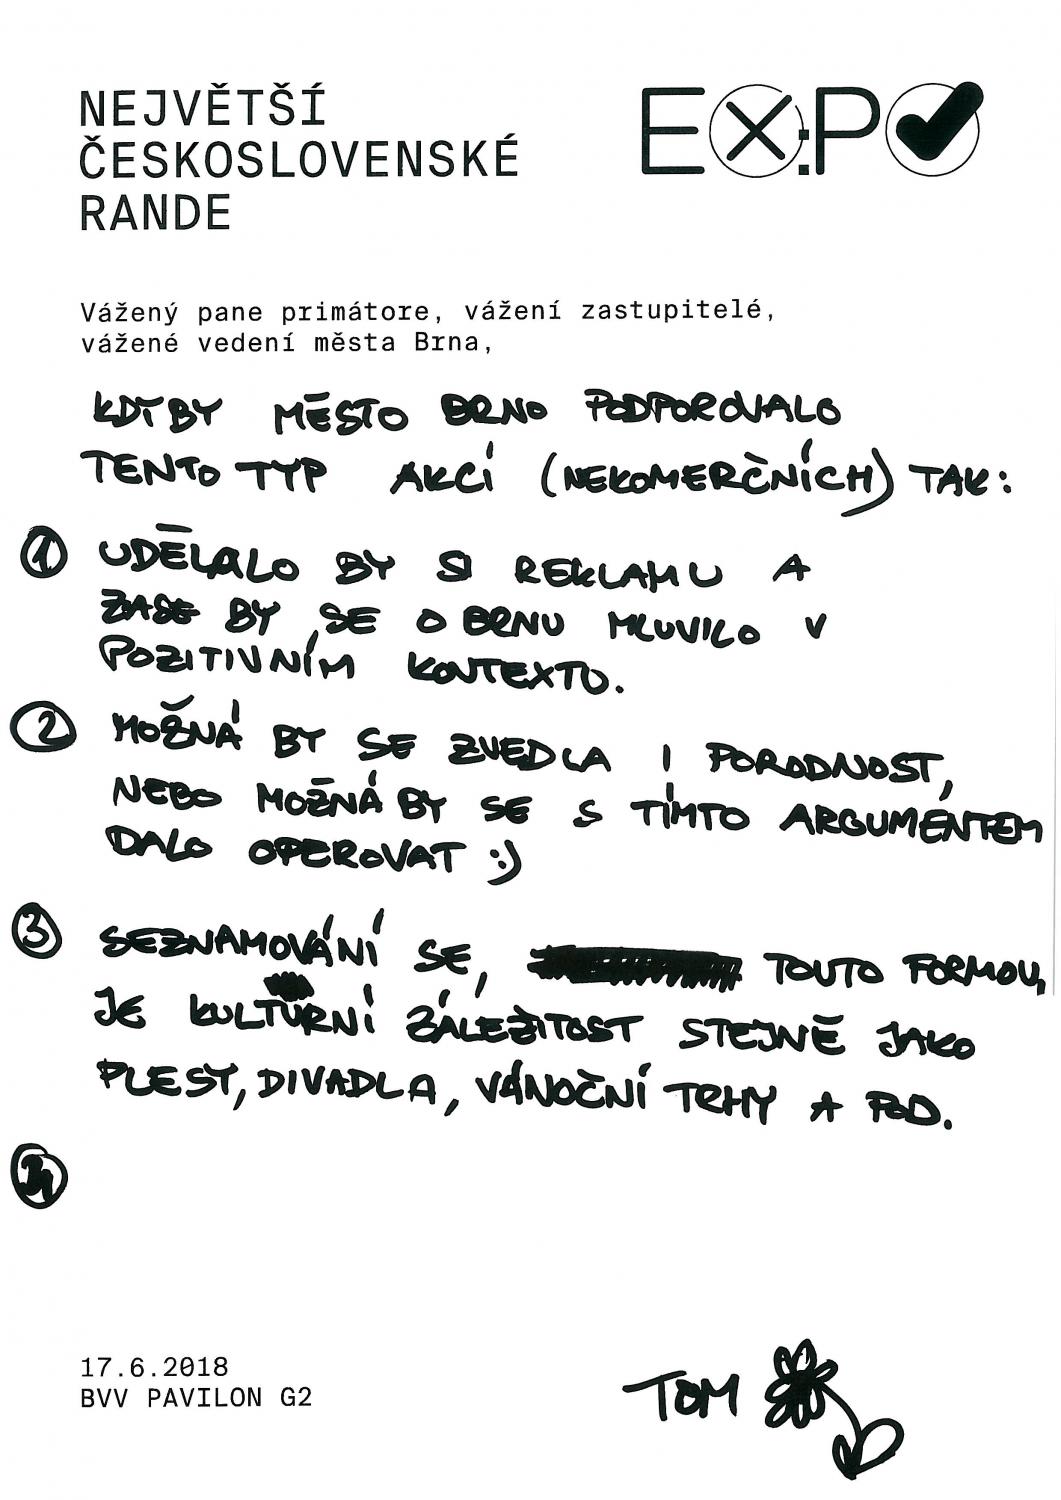 NEJVĚTŠÍ
ČESKOSLOVENSKÉ
RANDE
EX:PO
Vážený pane primátore, vážení zastupitelé,
vážené vedení města Brna,
KDYBY MĚSTO BRNO PODPOROVALO
TENTO TYP AKCÍ (NEKOMERČNÍCH) TAK:
1 UDĚLALO BY SI REKLAMU A
ZASE BY SE O BRNU MLUVILO V
POZITIVNÍM KONTEXTU.
2 MOŽNÁ BY SE ZVEDLA I PORODNOST,
NEBO MOŽNÁ BY SE S TÍMTO ARGUMENTEM
DALO OPEROVAT :)
3 SEZNAMOVÁNÍ SE, TOUTO FORMOU,
JE KULTURNÍ ZÁLEŽITOST STEJNĚ JAKO
PLESY, DIVADLA, VÁNOČNÍ TRHY A POD.
17.6.2018
BVV PAVILON G2
TOM